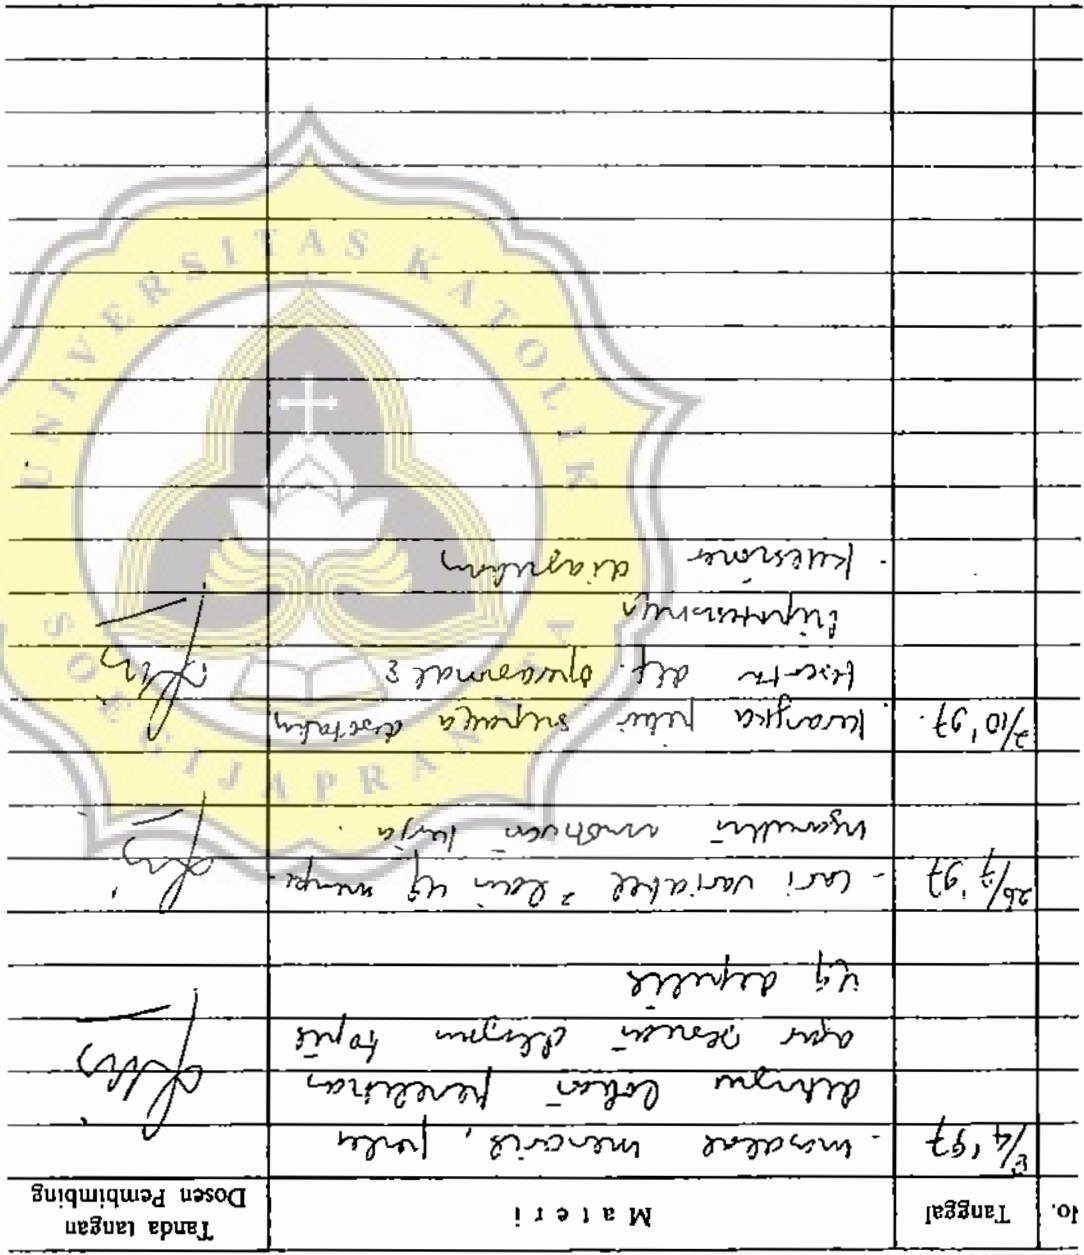 No. Tanggal Materi Tanda tangan
Dosen Pembimbing
8/4 '97 - masalah menarik, perlu
dengan lokasi penelitian
agar sesuai dengan topik
yg dipilih
26/7 '97 - cari variabel ² lain yg mempe-
ngaruhi motivasi kerja.
2/10 '97. kerangka pikir supaya
beserta def. operasional ²
hipotesisnya
- kuesioner
UNIVERSITAS KATOLIK
SOEGIJAPRANATA